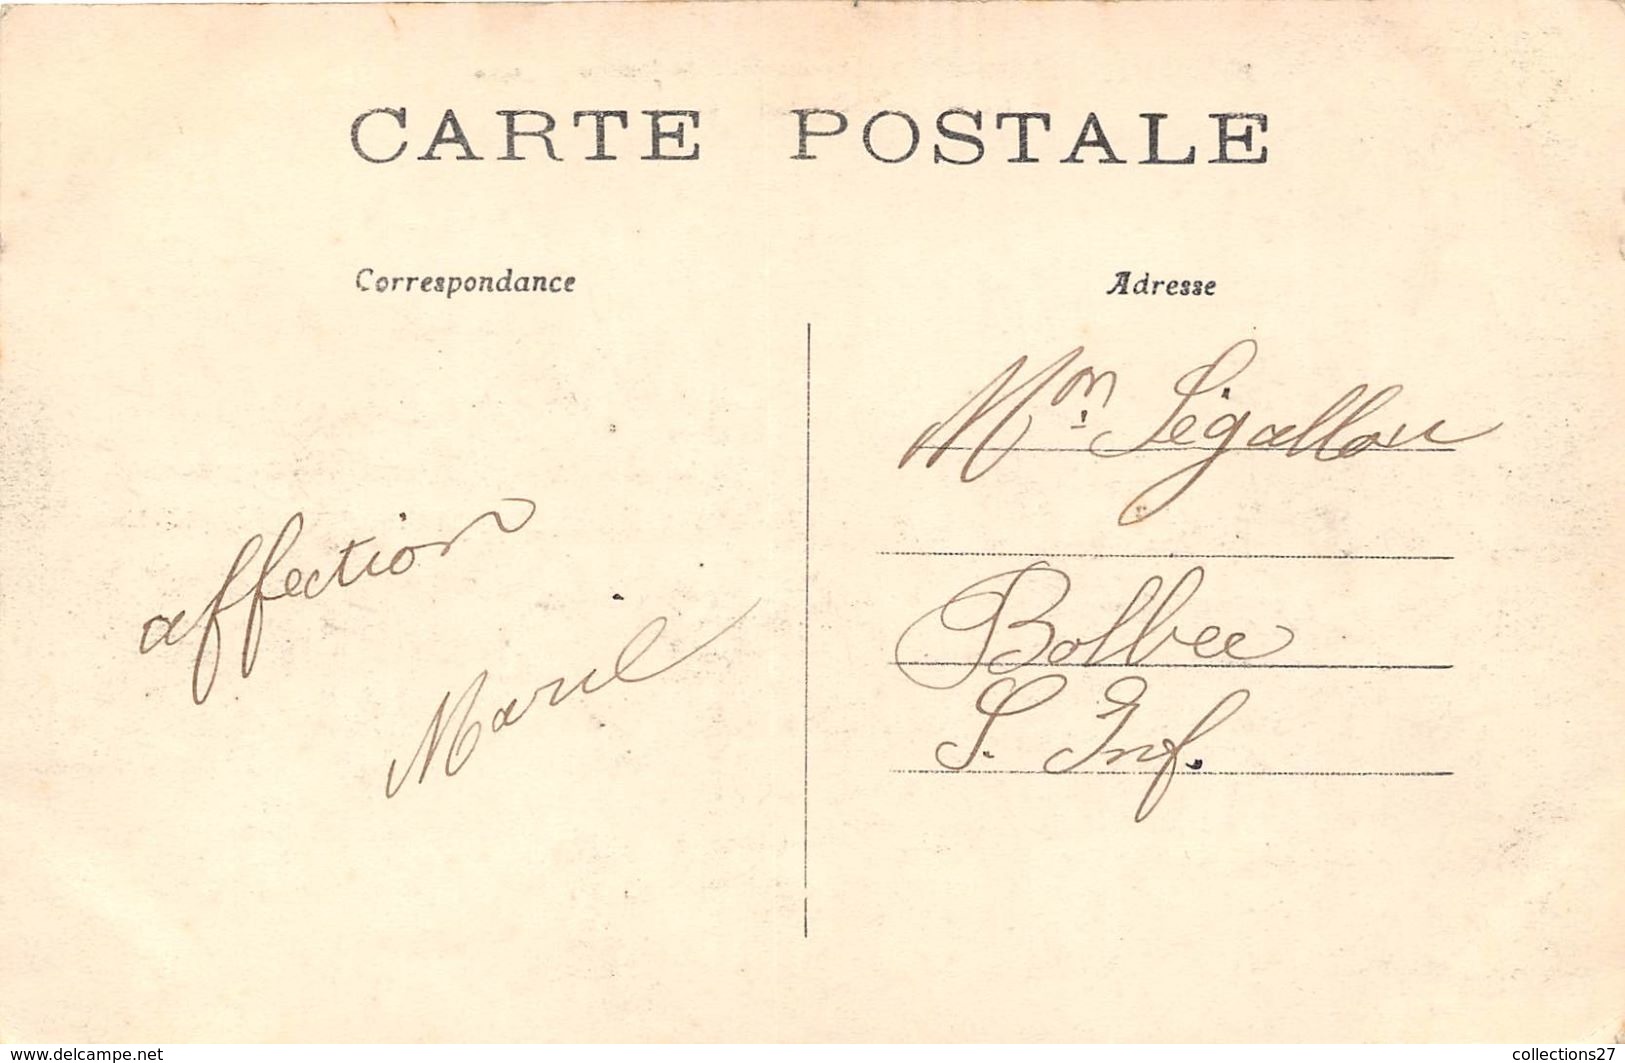 CARTE POSTALE
Correspondance
Adresse
affection
Mon Légallou
Bolbec
S. Inf.
www.delcampe.net
collections27